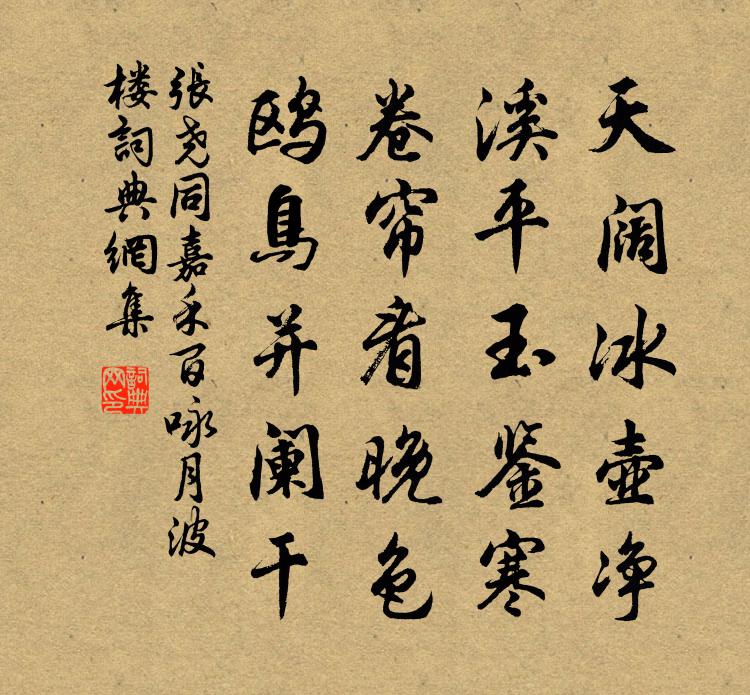 天阔冰壶净
溪平玉鉴寒
卷帘看晚色
鸥鳥并阑干
張尧同嘉禾百咏月波
楼詞典網集
詞典
网印